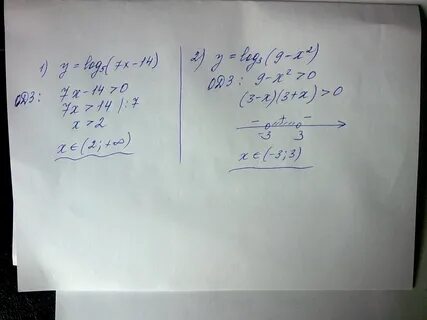 1) y = log₅(7x-14)
ОДЗ: 7x-14>0
7x>14 |:7
x>2
x∈(2;+∞)
2) y = log₃(9-x²)
ОДЗ: 9-x²>0
(3-x)(3+x)>0
- + -
-3 3
x∈(-3;3)